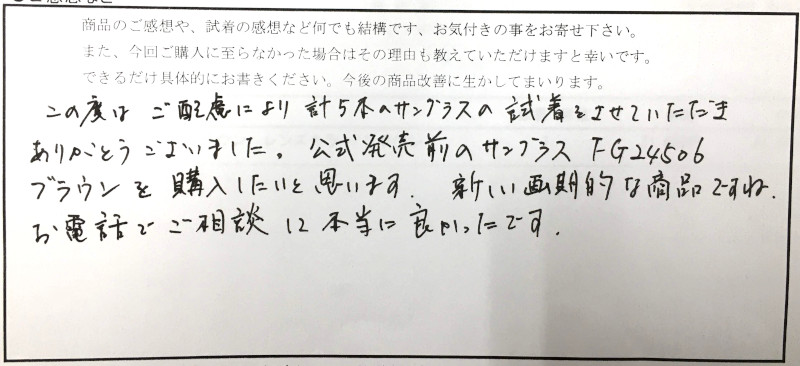 商品のご感想や、試着の感想など何でも結構です、お気付きの事をお寄せ下さい。
また、今回ご購入に至らなかった場合はその理由も教えていただけますと幸いです。
できるだけ具体的にお書きください。今後の商品改善に生かしてまいります。
この度は ご配慮により 計5本のサングラスの 試着をさせていただき
ありがとうございました。公式発売前のサングラス FG24506
ブラウンを購入したいと思います. 新しい画期的な商品ですね.
お電話でご相談して本当に良かったです.